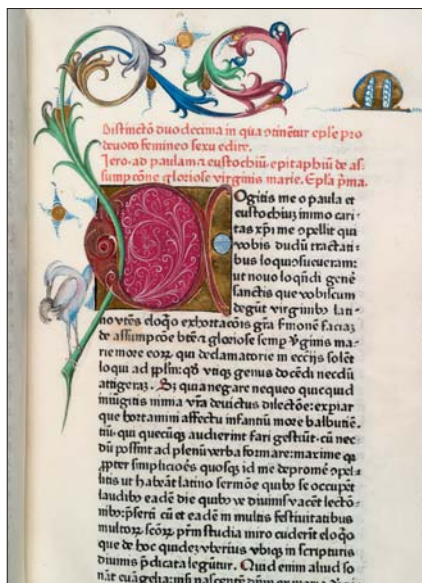 M
Distinctō duodecima in qua ɔtinētur epl̄e pro
deuoto femineo sexu edite.
Jero. ad paulam ⁊ eustochiū; epitaphiū de as⸗
sumpcōne gloriose virginis marie. Epl̄a p̄ma.
COgitis me o paula et
eustochiuȝ immo cari⸗
tas xp̄i me ɔpellit qui
vobis dudū tractati⸗
bus loqui ɔsueueram:
ut nouo loqn̄di genē
sanctis que vobiscum
degūt virginibȝ lati⸗
no vtēs eloq̄o exhortacōis gr̄a sermonē faciaȝ
de assumpcōe btē ⁊ gloriose semp v̄ginis ma⸗
rie more eoꝝ qui declamatorie in ecc̄ijs solēt
loqui ad pp̄lm: qd̄ vtiqȝ genus docēdi necdū
attigeraȝ. Sȝ quia negare nequeo quicquid
iniūgitis nimia vr̄a deuictus dilectōe: expiar
que hortamini affectu infantiū more balbutiē⸗
tiū. qui quecūqȝ audierint fari gestiūt. cū nec
dū possint ad plenū verba formare: maxime qꝛ
ꝓpter simpliciōes quosqȝ id me deprome ɔpel⸗
litis ut habeāt latino sermōe quibȝ se occupēt
laudibȝ eadē die quibȝ ⁊ diuinis vacēt lectō⸗
nibȝ: p̄serti cū et eadē in multis festiuitatibus
multoꝝ sc̄oꝝ pr̄m studia miro cuderīt eloq̄o
que de hoc quideȝ vberius vbiqȝ in scripturis
diuinis p̄dicata legūtur. Quid enim aliud so
nāt euāgelia: nisi nascentē